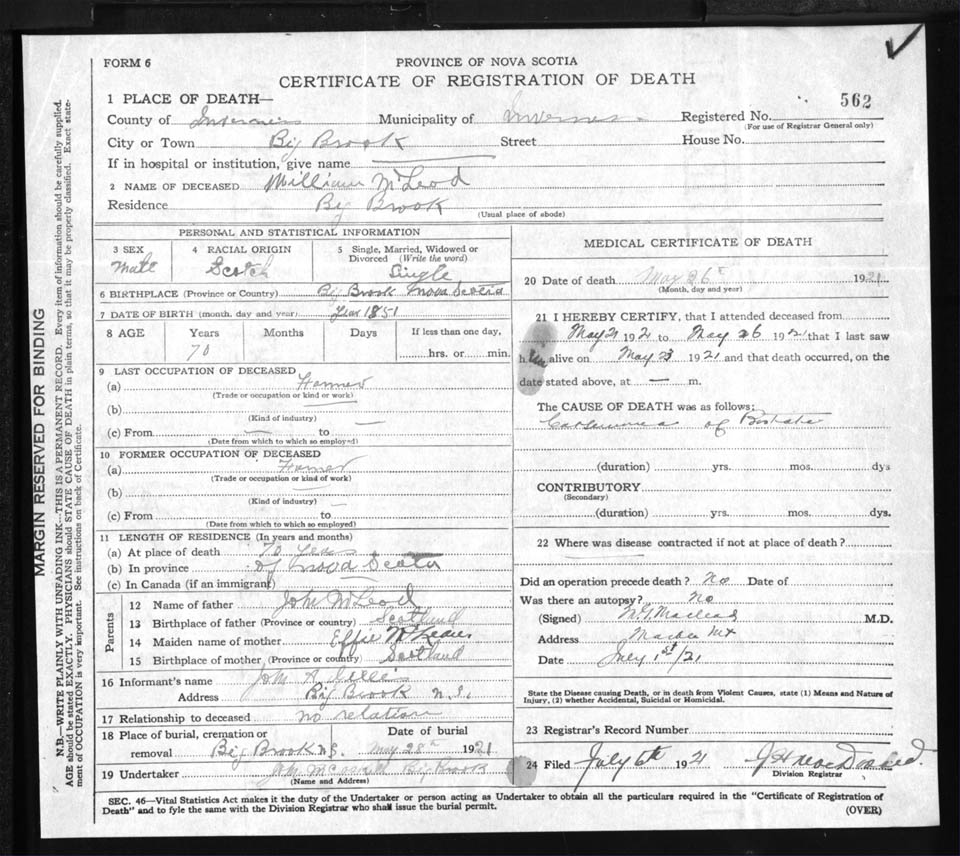 FORM 6
PROVINCE OF NOVA SCOTIA
CERTIFICATE OF REGISTRATION OF DEATH
562
1 PLACE OF DEATH—
County of Inverness Municipality of Inverness Registered No.
(For use of Registrar General only)
City or Town Big Brook Street House No.
If in hospital or institution, give name
2 NAME OF DECEASED William McLeod
Residence Big Brook
(Usual place of abode)
PERSONAL AND STATISTICAL INFORMATION
3 SEX Male
4 RACIAL ORIGIN Scotch
5 Single, Married, Widowed or Divorced (Write the word) Single
6 BIRTHPLACE (Province or Country) Big Brook Nova Scotia
7 DATE OF BIRTH (month, day and year) Year 1851
8 AGE Years Months Days If less than one day,
70 hrs. or min.
9 LAST OCCUPATION OF DECEASED
(a) Farmer
(Trade or occupation or kind or work)
(b)
(Kind of industry)
(c) From — to —
(Date from which to which so employed)
10 FORMER OCCUPATION OF DECEASED
(a) Farmer
(Trade or occupation or kind of work)
(b)
(Kind of industry)
(c) From to
(Date from which to which so employed)
11 LENGTH OF RESIDENCE (In years and months)
(a) At place of death 70 Years
(b) In province of Nova Scotia
(c) In Canada (if an immigrant)
Parents
12 Name of father John McLeod
13 Birthplace of father (Province or country) Scotland
14 Maiden name of mother Effie
15 Birthplace of mother (Province or country) Scotland
16 Informant's name John A Gillis
Address Big Brook N.S.
17 Relationship to deceased no relation
18 Place of burial, cremation or removal Big Brook N.S.
Date of burial May 28th 1921
19 Undertaker Big Brook
(Name and Address)
MEDICAL CERTIFICATE OF DEATH
20 Date of death May 26th 1921
(Month, day and year)
21 I HEREBY CERTIFY, that I attended deceased from
May 21 192 to May 26 1921 that I last saw
him alive on May 23 1921 and that death occurred, on the
date stated above, at — m.
The CAUSE OF DEATH was as follows:
Carcinoma of Prostate
(duration) yrs. mos. dys
CONTRIBUTORY
(Secondary)
(duration) yrs. mos. dys.
22 Where was disease contracted if not at place of death?
Did an operation precede death? No Date of
Was there an autopsy? No
(Signed) M.D.
Address
Date July 1st/21
State the Disease causing Death, or in death from Violent Causes, state (1) Means and Nature of
Injury, (2) whether Accidental, Suicidal or Homicidal.
23 Registrar's Record Number
24 Filed July 6th 1921
Division Registrar
SEC. 46—Vital Statistics Act makes it the duty of the Undertaker or person acting as Undertaker to obtain all the particulars required in the "Certificate of Registration of
Death" and to fyle the same with the Division Registrar who shall issue the burial permit.
(OVER)
MARGIN RESERVED FOR BINDING
N.B.—WRITE PLAINLY WITH UNFADING INK—THIS IS A PERMANENT RECORD. Every item of information should be carefully supplied.
AGE should be stated EXACTLY. PHYSICIANS should STATE CAUSE OF DEATH in plain terms, so that it may be properly classified. Exact state-
ment of OCCUPATION is very important. See instructions on back of Certificate.